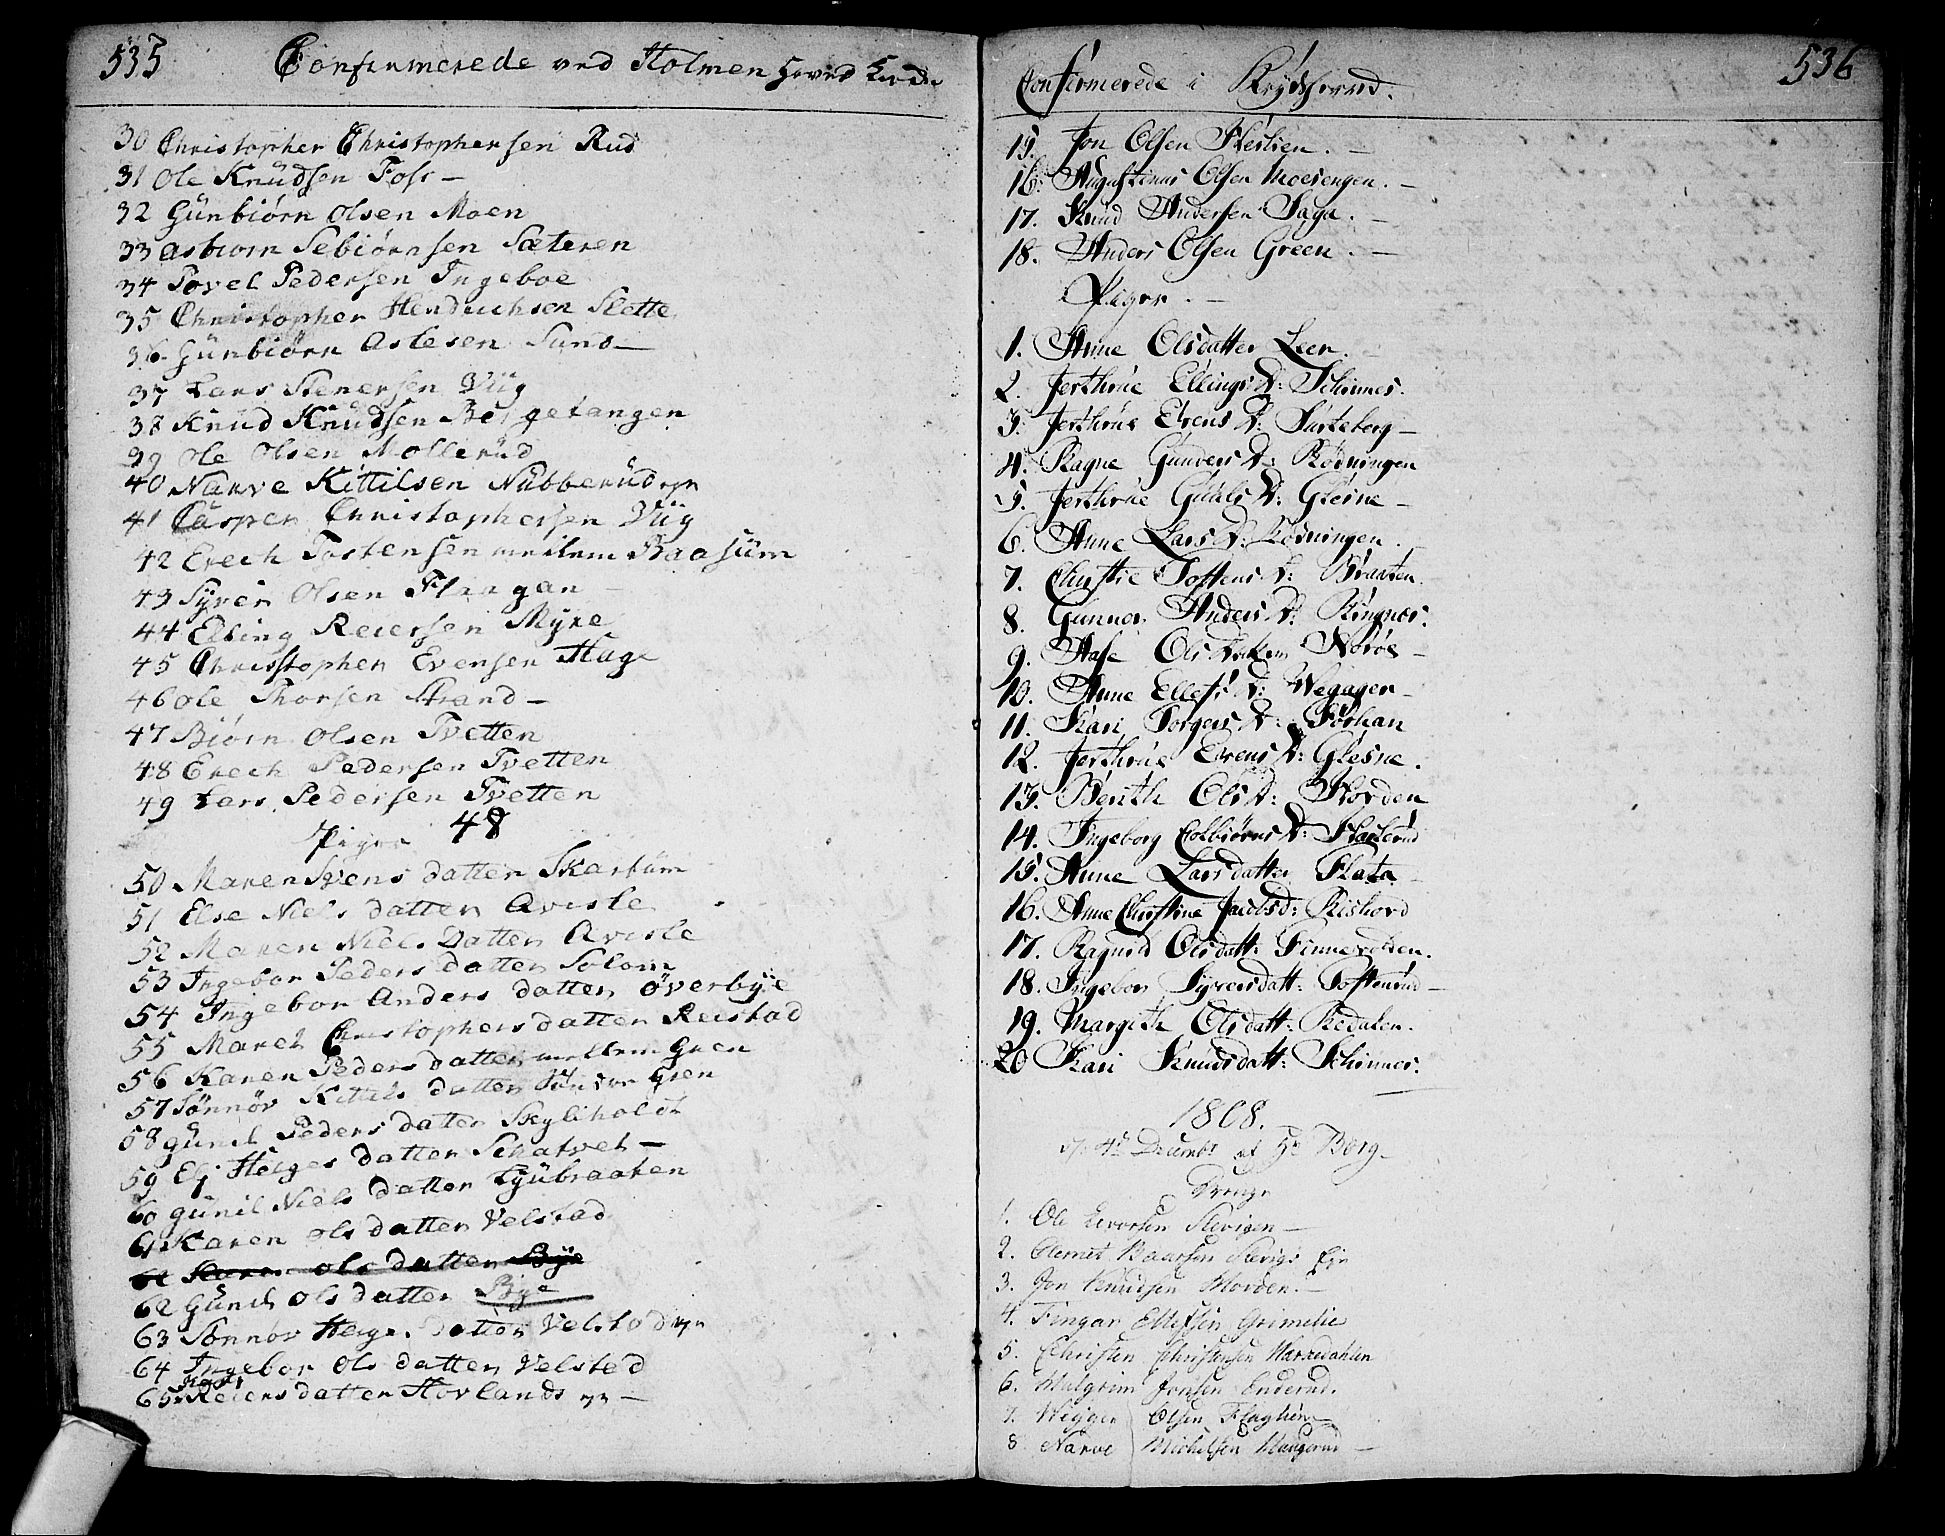 535 Confirmerede ved Holmen Hoved Kirke
30 Christopher Christophersen Rud
31 Ole Knüdsen Foss —
32 Günbiörn Olsen Moen
33 Asbiorn Sebiörnsen Sæteren
34 Povel Pedersen Ingeboe
35 Christopher Hendrichsen Slette
36. Günbiörn Aslesen Sand —
37 Lars Stenersen Viig
38 Knüd Knüdsen Bergetangen
39 Ole Olsen Mollerüd
40 Narve Kittilsen Nübberüd
41 Casper Christophersen Viig
42 Erech Tostensen mellem Baasüm
43 Syver Olsen Flaagan —
44 Elling Reiersen Myre
45 Christopher Evensen Hage
46 Ole Thorsen Strand —
47 Biörn Olsen Tvetten
48 Erech Pedersen Tvetten
49 Lars Pedersen Tvetten
Piger 48
50 Maren Svens datter Skartum
51 Else Niels datter Averle
52 Maren Niels Datter Averle
53 Ingebor Peders datter Solem
54 Ingebor Anders datter överbÿe
55 Maret Christophers datter Reistad
56 Karen Peders datter mellem Green
57 Sönnöv Kittels datter Søndre Gren
58 Gunil Peders datter Skyliholdt
59 Eli Helges datter Schatvet —
60 Gunil Niels datter Lyübraaten
61 Karen Ols datter Velstad
62 Karen ols datter Bÿe
62 Günil Ols datter Bye
63 Sönnöv Helges datter Velstad
64 Ingebor Ols datter Velsted
65 Reiers datter Hovlands —
Confirmerede i Krydsherred. 536
15. Jon Olsen Skeslien. —
16. Augustinus Olsen Moesengen. —
17. Knud Andersen Saga. —
18. Anders Olsen Green. —
Piger. —
1. Anne Olsdatter Leer. —
2. Jerthrüe Ellings D: Schinnes.
3. Jerthrüe Evens D: Sarteberg —
4. Ragne Gunders D: Rödningen
5. Jerthrüe Guüls D: Glesne —
6. Anne Lars D: Rödningen. —
7. Christie Tostens D: Braaten.
8. Gunner Anders D: Ringnes.
9. Aase Ols D: Noröe —
10. Anne Ellefs D: Wegager —
11. Kari Torgers D: Förhan
12. Jerthrüe Evens D: Glesne.
13. Berith Ols D: Horden
14. Ingeborg Colbiörns D: Skaslerud
15. Anne Lars datter Flata —
16. Anne Christine Jacobsd: Rishovd
17. Ragnild Olsdatt: Finnerudeen.
18. Ingebor Syversdatt: Toftenrud —
19. Margith Olsdatt: Redalen.
20 Kari Knudsdatt: Schinnes.
1808.
Decembr af Hr Berg —
Drenge
1. Ole Evorsen Slevigen —
2. Clemet Baarsen Slevigs Eje
3. Jon Knudsen Horden. —
4. Fingar Ellefsen Grimelie
5. Christen Christensen Harredahlen
6. Halgrim Jonsen Enderud.
7. Wegger Olsen Flaghen
8. Narve Michelsen Haugerud —